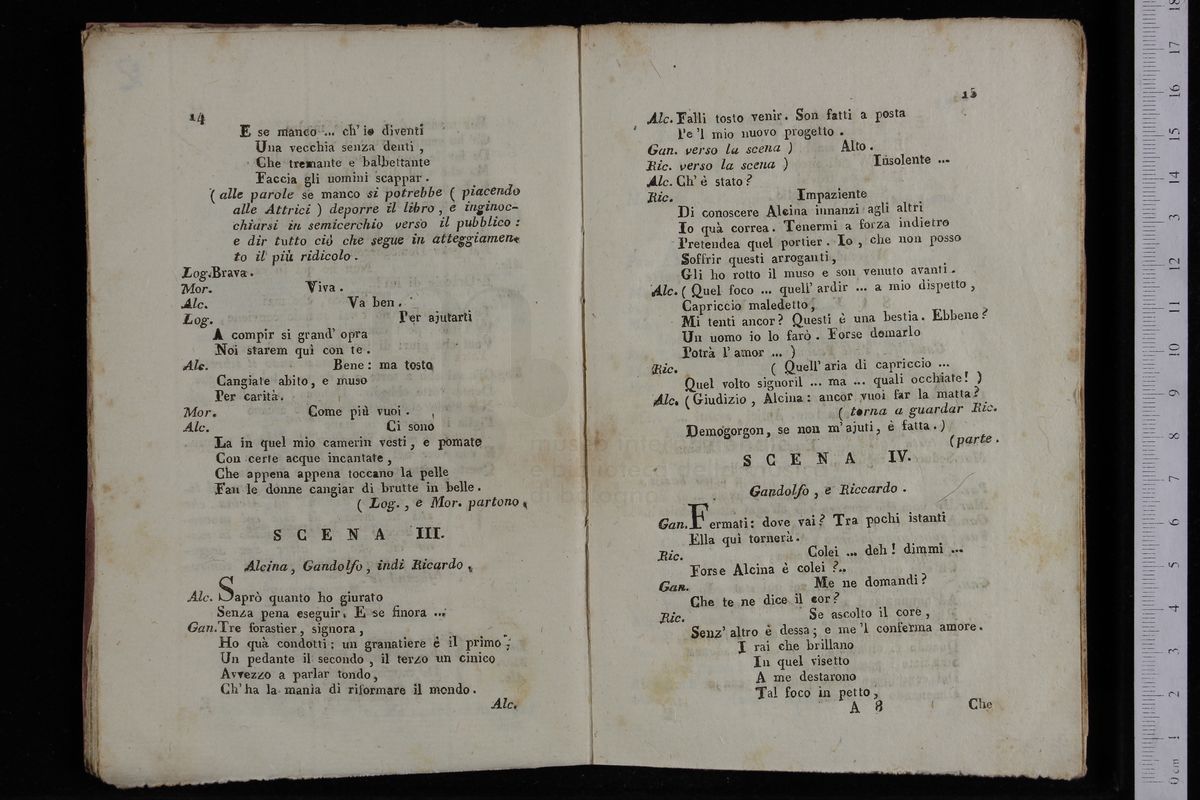 14
E se manco ... ch' io diventi
Una vecchia senza denti ,
Che tremante e balbettante
Faccia gli uomini scappar .
( alle parole se manco si potrebbe ( piacendo
alle Attrici ) deporre il libro , e inginoc-
chiarsi in semicerchio verso il pubblico :
e dir tutto ciò che segue in atteggiamen-
to il più ridicolo .
Log. Brava .
Mor. Viva .
Alc. Va ben .
Log. Per ajutarti
A compir si grand' opra
Noi starem quì con te .
Alc. Bene : ma tosto
Cangiate abito , e muso
Per carità .
Mor. Come più vuoi .
Alc. Ci sono
La in quel mio camerin vesti , e pomate
Con certe acque incantate ,
Che appena appena toccano la pelle
Fan le donne cangiar di brutte in belle .
( Log. , e Mor. partono .
SCENA III.
Alcina , Gandolfo , indi Ricardo .
Alc. Saprò quanto ho giurato
Senza pena eseguir . E se finora ...
Gan. Tre forastier , signora ,
Ho quà condotti ; un granatiere è il primo ;
Un pedante il secondo , il terzo un cinico
Avvezzo a parlar tondo ,
Ch' ha la mania di riformare il mondo .
Alc.
15
Alc. Falli tosto venir . Son fatti a posta
Pe 'l mio nuovo progetto .
Gan. verso la scena ) Alto .
Ric. verso la scena ) Insolente ...
Alc. Ch' è stato ?
Ric. Impaziente
Di conoscere Alcina innanzi agli altri
Io quà correa . Tenermi a forza indietro
Pretendea quel portier . Io , che non posso
Soffrir questi arroganti ,
Gli ho rotto il muso e son venuto avanti .
Alc. ( Quel foco ... quell' ardir ... a mio dispetto ,
Capriccio maledetto ,
Mi tenti ancor ? Questi è una bestia . Ebbene ?
Un uomo io lo farò . Forse domarlo
Potrà l' amor ... )
Ric. ( Quell' aria di capriccio ...
Quel volto signoril ... ma ... quali occhiate ! )
Alc. ( Giudizio , Alcina : ancor vuoi far la matta ?
( torna a guardar Ric.
Demogorgon , se non m' ajuti , è fatta . )
( parte .
SCENA IV.
Gandolfo , e Riccardo .
Gan. Fermati : dove vai ? Tra pochi istanti
Ella quì tornerà .
Ric. Colei ... deh ! dimmi ...
Forse Alcina è colei ? ..
Gan. Me ne domandi ?
Che te ne dice il cor ?
Ric. Se ascolto il core ,
Senz' altro è dessa ; e me 'l conferma amore .
I rai che brillano
In quel visetto
A me destarono
Tal foco in petto ,
A 8 Che